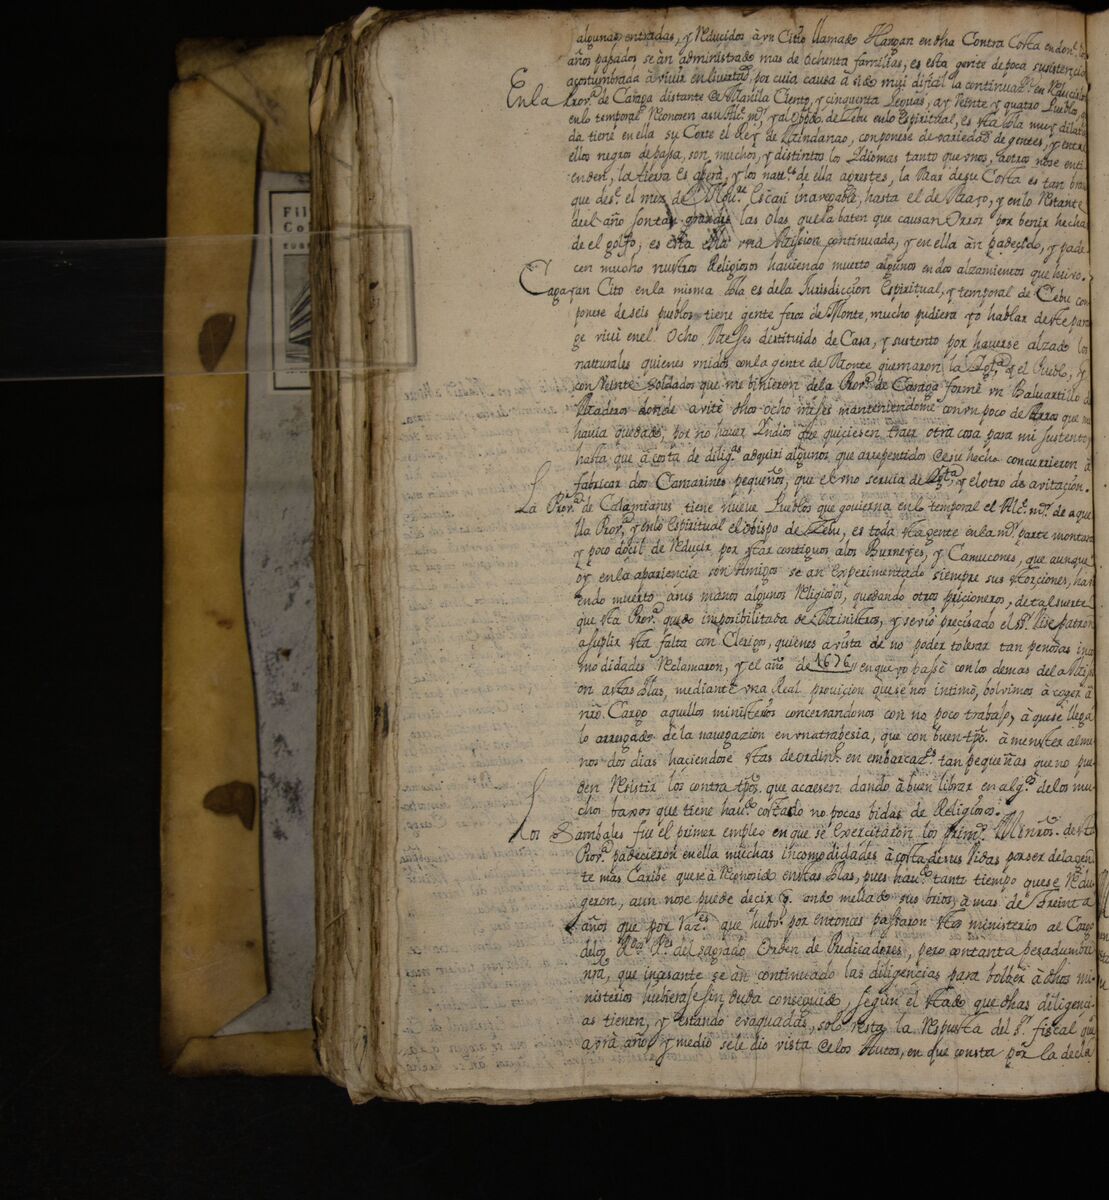 algunas entradas, y reducidos à vn Citio llamado en dha Contra Costa en don.
años pasados se àn administrado mas de ochenta familias, es esta gente de poca
acostumbrada à vivir en livertad, por cuia causa à sido mui dificil la
En la Prov.ª de Caraga distante de Manila Ciento, y cinquenta leguas, ay veinte y quatro Pueblos
en lo temporal reconosen a su Alc.e m.r y al obpdo. de Zebu en lo Espiritual, es sta Isla muy dilata
da tiene en ella su Corte el Rey de Mindanao, componese de variedad de gentes, y entre
ellos negros de passa, son muchos, y distintos los Ydiomas tanto que vnos, aotros nose enti
enden, la tierra es aspera, y los nat.es de ella agrestes, la Mar de su Costa es tan brau
que des.e el mez de es casi inavegable, hasta el de Mayo, y en lo restante
de el año son tan grandes las olas que la baten que causan orror por benir hecha
de el golfo, es esta Isla vna Mission continuada, y en ella àn padecido, y pade
cen mucho nustros Religiosos haviendo muerto algunos en dos alzamientos que
Cagayan Cito en la misma Isla es de la Jurisdiccion Espiritual, y temporal de Cebu com
ponese de seis pueblos tiene gente feros de Monte, mucho pudiera yo hablar deste para
ge vivi en el Ocho Meses destituido de Casa, y sustento por haverse alzado los
natturales quienes vnidos con la gente de Monte quemaron la y el Pueblo, y
con veinte soldados que me binieron de la Prov.ª de Caraga formè vn Baluartillo de
Maderos donde avitè dhos ocho meses manteniendome con vn poco de Arros que me
havia quedado, por no haver Yndios que quiciesen traer otra cosa para mi sustento
hasta que à costa de dilig.as adquiri algunos que arrepentidos de su hecho concurrieron à
fabricar dos Camarines pequeños, que el vno servia de y el otro de avitacion.
La Prov.ª de Calamianes tiene nueve Pueblos que govierna en lo temporal el Alc.e m.r de aque
lla Prov.ª y en lo Espiritual el obispo de Zebu, es toda sta gente en la m.r parte montaraz
y poco docil de reducir por star contiguos alos Burneyes, y Camucones, que aunque
oy en la apariencia son Amigos se an experimentado siempre sus storciones, havi
endo muerto à sus manos algunos Religiosos, quedando otros pricioneros, de tal suerte
que sta Prov.ª quedo imposibilitada de Ministros, y se vio precisado el s.r Vise patron
a suplir sta falta con Clerigos, quienes a vista de no poder tolerar tan penosas inco
modidades reclamaron, y el año de 1676, en que yo passè con los demas de la Missi
on a stas Islas, mediante vna Real provicion que se nos intimò, bolvimos à coger à
nro. Cargo aquellos ministerios concervandonos con no poco trabajo, à que se llega
lo arresgado de la navegazion en vna trabesia, que con buen tpo. à menster alme
nos dos dias haciendose stas de ordin.o en embarcaz.es tan pequeñas que no pue
den resistir los contra tpos. que acaesen dando à buen librar en alg.o de los mu
chos baxos que tiene hav.do costado no pocas bidas de Religiosos.
Los Sambales fue el primer empleo en que se exercitaron los prim.os Minros. de sta
Prov.ª padecieron en ella muchas incomodidades à costa de sus vidas por ser de la gen
te mas Caribe que se à reconosido en stas Islas, pues hav.do tanto tiempo que se redu
geron, aun nose puede decir q. ande mellado sus brios, à mas de treinta
años que por raz.es que hubo por entonces passaron stos ministerios al Cargo
delos R.dos P.es del sagrado Orden de Predicadores, pero con tanta pesadumbre
nra, que incesante se àn continuado las diligencias para bolver à dhos mi
nisterios hubierase sin duda conseguido, segun el stado que dhas diligenci
as tienen, y estando evaquadas, solo resta la respuesta del s.r fiscal que
avrà año, y medio se le dio vista de los Autos, en que consta por la decla